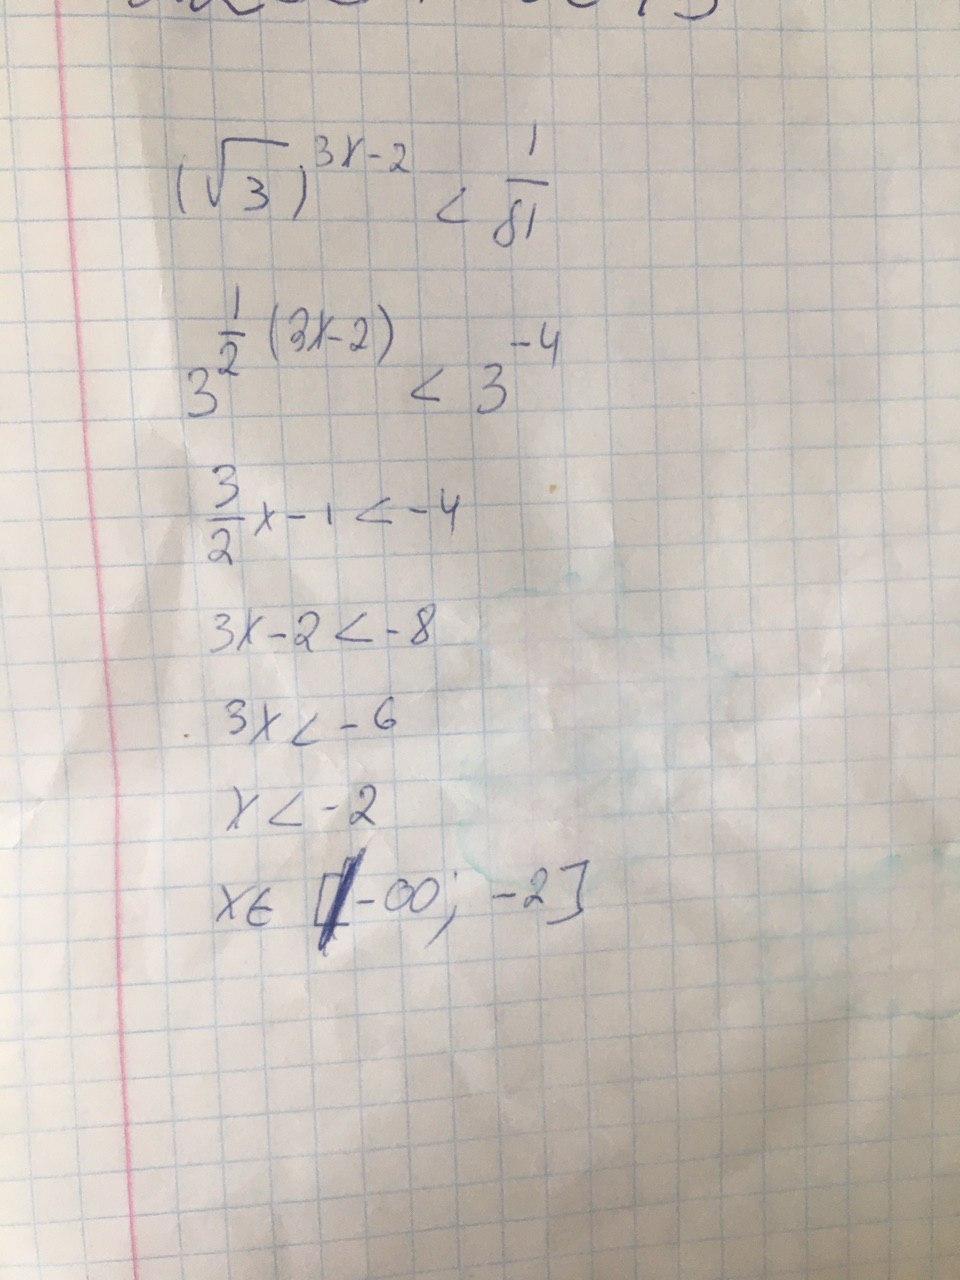 (√3)^(3x-2) < 1/81
3^(1/2 (3x-2)) < 3^(-4)
3/2 x - 1 < -4
3x - 2 < -8
3x < -6
x < -2
x ∈ (-∞; -2]